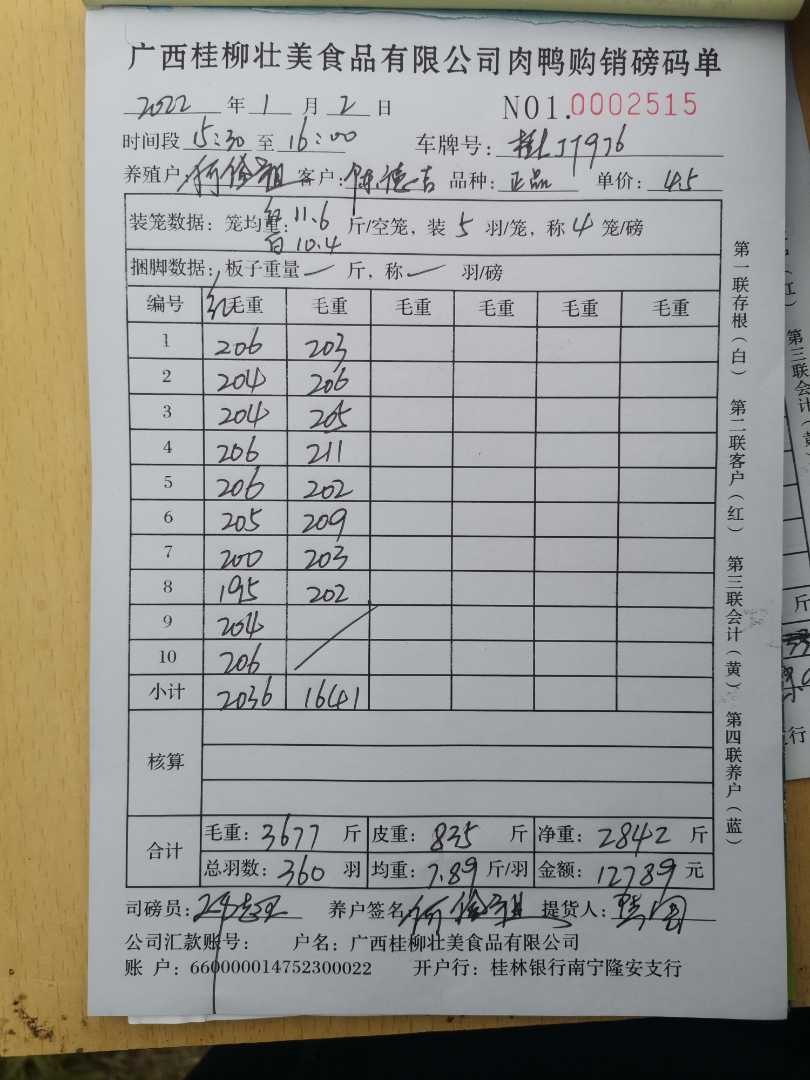 广西桂柳壮美食品有限公司肉鸭购销磅码单
2022 年 1 月 2 日 NO1.0002515
时间段 15:30 至 16:00 车牌号: 桂LJ7976
养殖户 客户: 陈德吉 品种: 正品 单价: 4.5
装笼数据: 笼均重: 红 11.6 白 10.4 斤/空笼, 装 5 羽/笼, 称 4 笼/磅
捆脚数据: 板子重量 一 斤, 称 一 羽/磅
编号 红毛重 毛重 毛重 毛重 毛重 毛重
1 206 203
2 204 206
3 204 205
4 206 211
5 206 202
6 205 209
7 200 203
8 195 202
9 204
10 206
小计 2036 1641
核算
合计 毛重: 3677 斤 皮重: 835 斤 净重: 2842 斤
总羽数: 360 羽 均重: 7.89 斤/羽 金额: 12789 元
司磅员: 养户签名 提货人:
公司汇款账号: 户名: 广西桂柳壮美食品有限公司
账 户: 660000014752300022 开户行: 桂林银行南宁隆安支行
第一联存根(白) 第二联客户(红) 第三联会计(黄) 第四联养户(蓝)